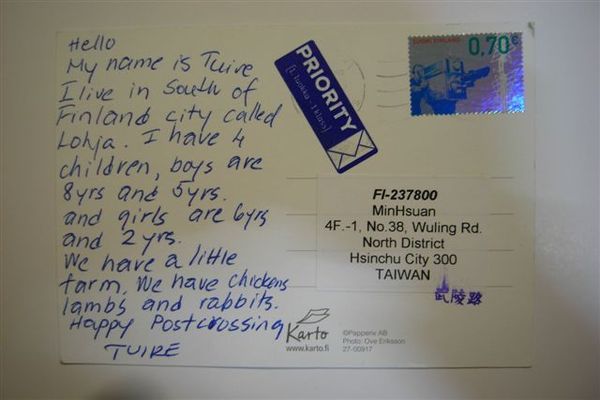 Hello
My name is Tuire
I live in South of
Finland city called
Lohja. I have 4
children, boys are
8yrs and 5yrs.
and girls are 6yrs
and 2 yrs.
We have a little
farm. We have chickens
lambs and rabbits.
Happy Postcrossing
TUIRE
PRIORITY
[1. luokka - 1 klass]
SUOMI FINLAND
0,70€
FI-237800
MinHsuan
4F.-1, No.38, Wuling Rd.
North District
Hsinchu City 300
TAIWAN
武陵路
Karto
www.karto.fi
©Papperix AB
Photo: Ove Eriksson
27-00917